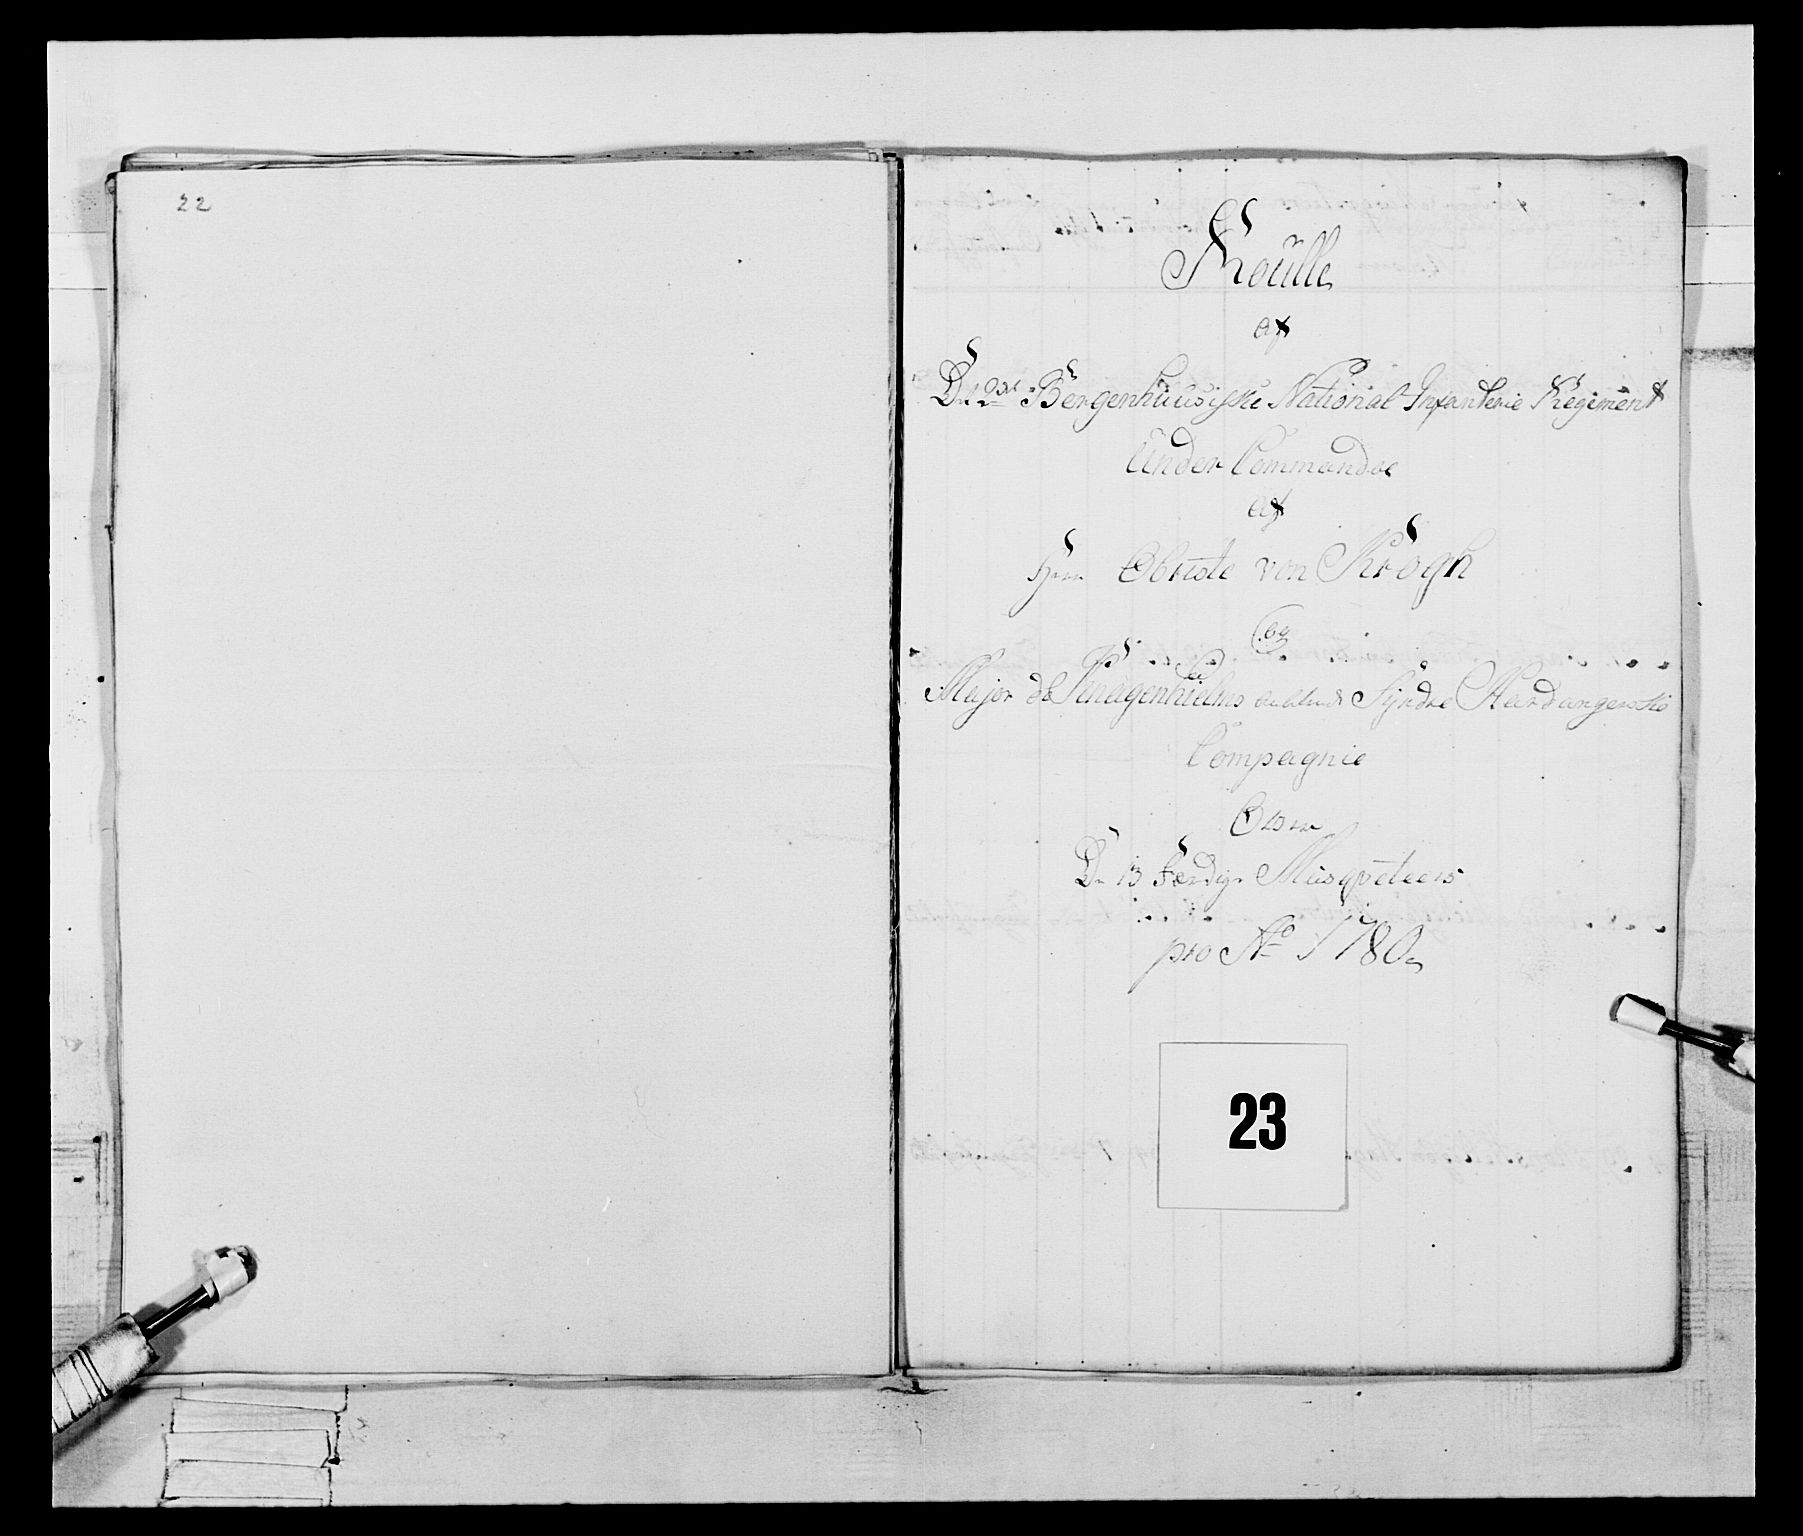 22
Roulle
af
Det 2det Bergenhuusiske National Infanterie Regiment
Under Commandoe
af
Herr Obriste von Krogh
og
Major de Knagenhielms Søndre Hardangerske
Compagnie
Over
De 13 Færdige Musqveteers
pro Ao 1780
23